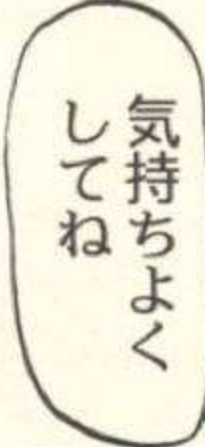 気持ちよく
してね